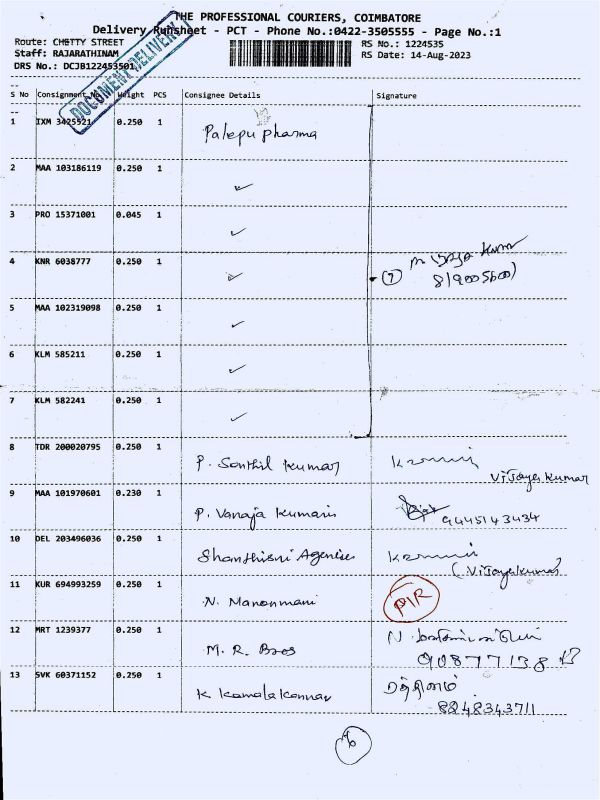 THE PROFESSIONAL COURIERS, COIMBATORE
Delivery Runsheet - PCT - Phone No.:0422-3505555 - Page No.:1
Route: CHETTY STREET
RS No.: 1224535
Staff: RAJARATHINAM
RS Date: 14-Aug-2023
DRS No.: DCJB122453501
DOCUMENT DELIVERY
S No Consignment No Weight PCS Consignee Details Signature
1 IXM 3425521 0.250 1 Palepu pharma
2 MAA 103186119 0.250 1 ✓
3 PRO 15371001 0.045 1 ✓
4 KNR 6038777 0.250 1 ✓ (7) Kumar
5 MAA 102319098 0.250 1 ✓
6 KLM 585211 0.250 1 ✓
7 KLM 582241 0.250 1 ✓
8 TDR 200020795 0.250 1 P. Senthil Kumar
Vijaya Kumar
9 MAA 101970601 0.230 1 P. Vanaja Kumari 9445143434
10 DEL 203496036 0.250 1 Agencies
(Vijayakumar)
11 KUR 694993259 0.250 1 N. Manonmani
12 MRT 1239377 0.250 1 M. R. Bros N.
13 SVK 60371152 0.250 1 K Kamalakannan
8248343711